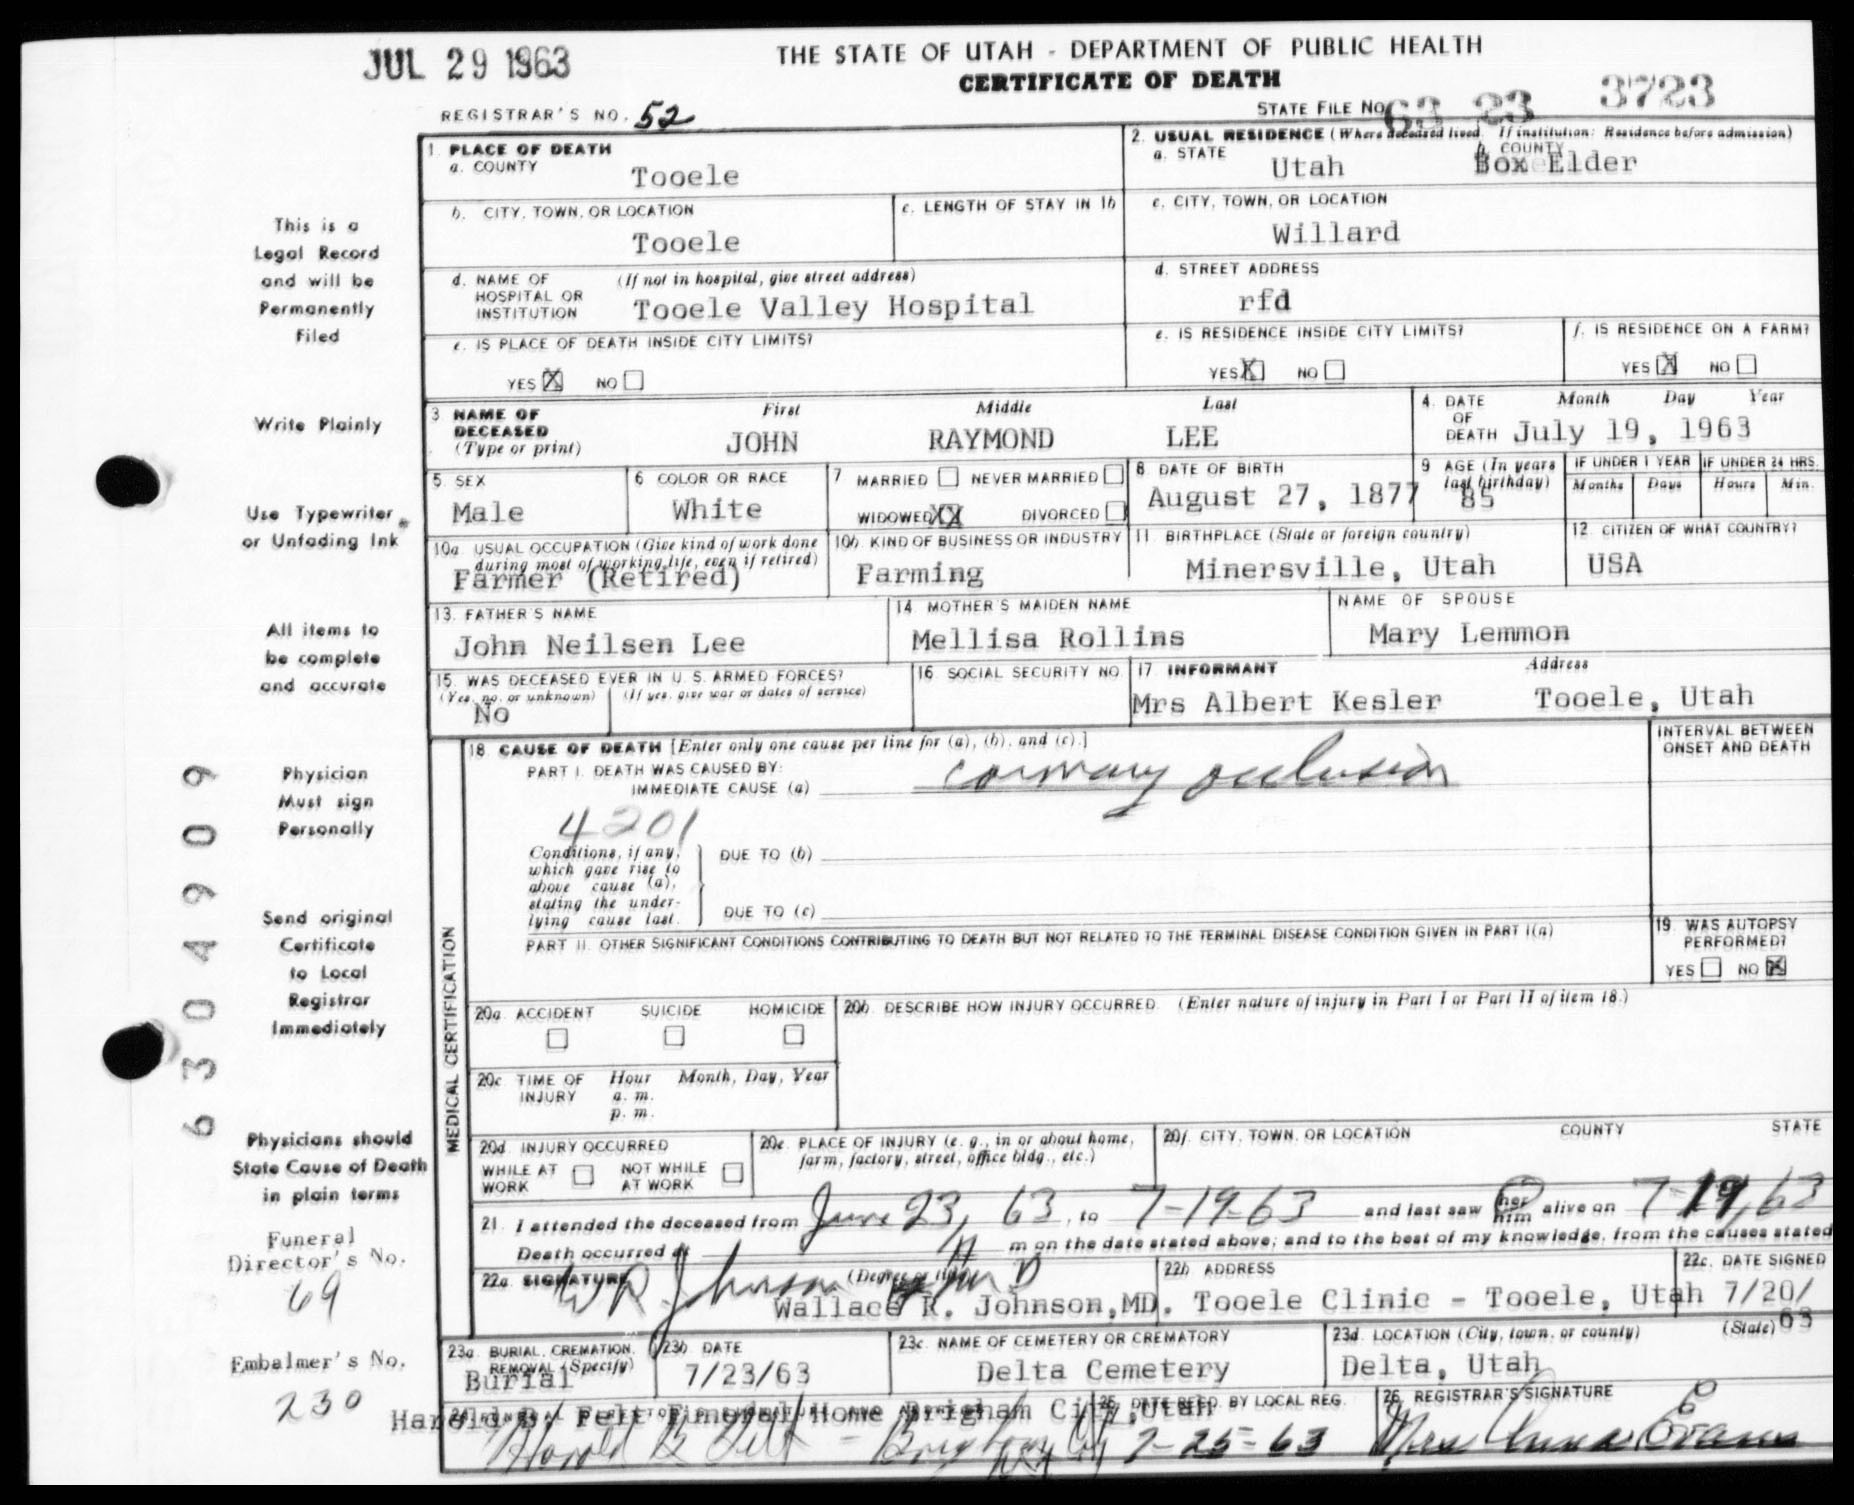 JUL 29 1963
THE STATE OF UTAH - DEPARTMENT OF PUBLIC HEALTH
CERTIFICATE OF DEATH
REGISTRAR'S NO. 52
STATE FILE NO. 63 23 3723
This is a
Legal Record
and will be
Permanently
Filed
Write Plainly
Use Typewriter
or Unfading Ink
All items to
be complete
and accurate
Physician
Must sign
Personally
Send original
Certificate
to Local
Registrar
Immediately
Physicians should
State Cause of Death
in plain terms
Funeral
Director's No.
69
Embalmer's No.
230
6304909
1. PLACE OF DEATH
a. COUNTY
Tooele
2. USUAL RESIDENCE (Where deceased lived. If institution: Residence before admission)
a. STATE Utah
b. COUNTY Box Elder
b. CITY, TOWN, OR LOCATION
Tooele
c. LENGTH OF STAY IN 1b
c. CITY, TOWN, OR LOCATION
Willard
d. NAME OF HOSPITAL OR INSTITUTION (If not in hospital, give street address)
Tooele Valley Hospital
d. STREET ADDRESS
rfd
e. IS PLACE OF DEATH INSIDE CITY LIMITS?
YES X NO
e. IS RESIDENCE INSIDE CITY LIMITS?
YES X NO
f. IS RESIDENCE ON A FARM?
YES X NO
3 NAME OF DECEASED (Type or print)
First Middle Last
JOHN RAYMOND LEE
4. DATE OF DEATH Month Day Year
July 19, 1963
5. SEX
Male
6 COLOR OR RACE
White
7 MARRIED NEVER MARRIED
WIDOWED XX DIVORCED
8 DATE OF BIRTH
August 27, 1877
9 AGE (In years last birthday)
85
IF UNDER 1 YEAR
Months Days
IF UNDER 24 HRS.
Hours Min.
10a. USUAL OCCUPATION (Give kind of work done during most of working life, even if retired)
Farmer (Retired)
10b. KIND OF BUSINESS OR INDUSTRY
Farming
11. BIRTHPLACE (State or foreign country)
Minersville, Utah
12. CITIZEN OF WHAT COUNTRY?
USA
13. FATHER'S NAME
John Neilsen Lee
14 MOTHER'S MAIDEN NAME
Mellisa Rollins
NAME OF SPOUSE
Mary Lemmon
15. WAS DECEASED EVER IN U.S. ARMED FORCES?
(Yes, no, or unknown) (If yes, give war or dates of service)
No
16. SOCIAL SECURITY NO.
17 INFORMANT Address
Mrs Albert Kesler Tooele, Utah
MEDICAL CERTIFICATION
18 CAUSE OF DEATH [Enter only one cause per line for (a), (b), and (c).]
INTERVAL BETWEEN ONSET AND DEATH
PART I. DEATH WAS CAUSED BY:
IMMEDIATE CAUSE (a) coronary occlusion
4201
Conditions, if any, which gave rise to above cause (a), stating the underlying cause last.
DUE TO (b)
DUE TO (c)
PART II. OTHER SIGNIFICANT CONDITIONS CONTRIBUTING TO DEATH BUT NOT RELATED TO THE TERMINAL DISEASE CONDITION GIVEN IN PART I(a)
19. WAS AUTOPSY PERFORMED?
YES NO X
20a. ACCIDENT SUICIDE HOMICIDE
20b. DESCRIBE HOW INJURY OCCURRED. (Enter nature of injury in Part I or Part II of item 18.)
20c. TIME OF INJURY Hour Month, Day, Year
a. m.
p. m.
20d. INJURY OCCURRED
WHILE AT WORK NOT WHILE AT WORK
20e. PLACE OF INJURY (e. g., in or about home, farm, factory, street, office bldg., etc.)
20f. CITY, TOWN, OR LOCATION COUNTY STATE
21. I attended the deceased from June 23, 63, to 7-19-63 and last saw her him alive on 7-19, 63
Death occurred at m on the date stated above; and to the best of my knowledge, from the causes stated
22a. SIGNATURE (Degree or title)
W R Johnson M D
Wallace R. Johnson, MD.
22b. ADDRESS
Tooele Clinic - Tooele, Utah
22c. DATE SIGNED
7/20/63
23a. BURIAL, CREMATION, REMOVAL (Specify)
Burial
23b. DATE
7/23/63
23c. NAME OF CEMETERY OR CREMATORY
Delta Cemetery
23d. LOCATION (City, town, or county) (State)
Delta, Utah
Harold B. Felt Funeral Home Brigham City, Utah
Harold B Felt - Brigham City
25. DATE REC'D. BY LOCAL REG.
7-25-63
26. REGISTRAR'S SIGNATURE
Mrs Anna Evans